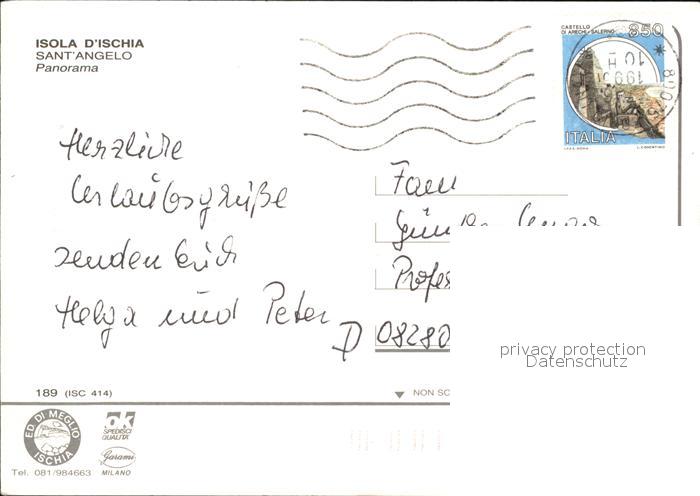 ISOLA D'ISCHIA
SANT'ANGELO
Panorama
CASTELLO
DI ARECHI-SALERNO
850
ITALIA
I.P.Z.S. ROMA
Herzliche
Urlaubsgrüße
senden Euch
Helga und Peter
Fam
Profes
D 08280
privacy protection
Datenschutz
189 (ISC 414)
NON SC
ED. DI MEGLIO
ISCHIA
ok
SPEDISCI
QUALITÀ
Garami
MILANO
Tel. 081/984663